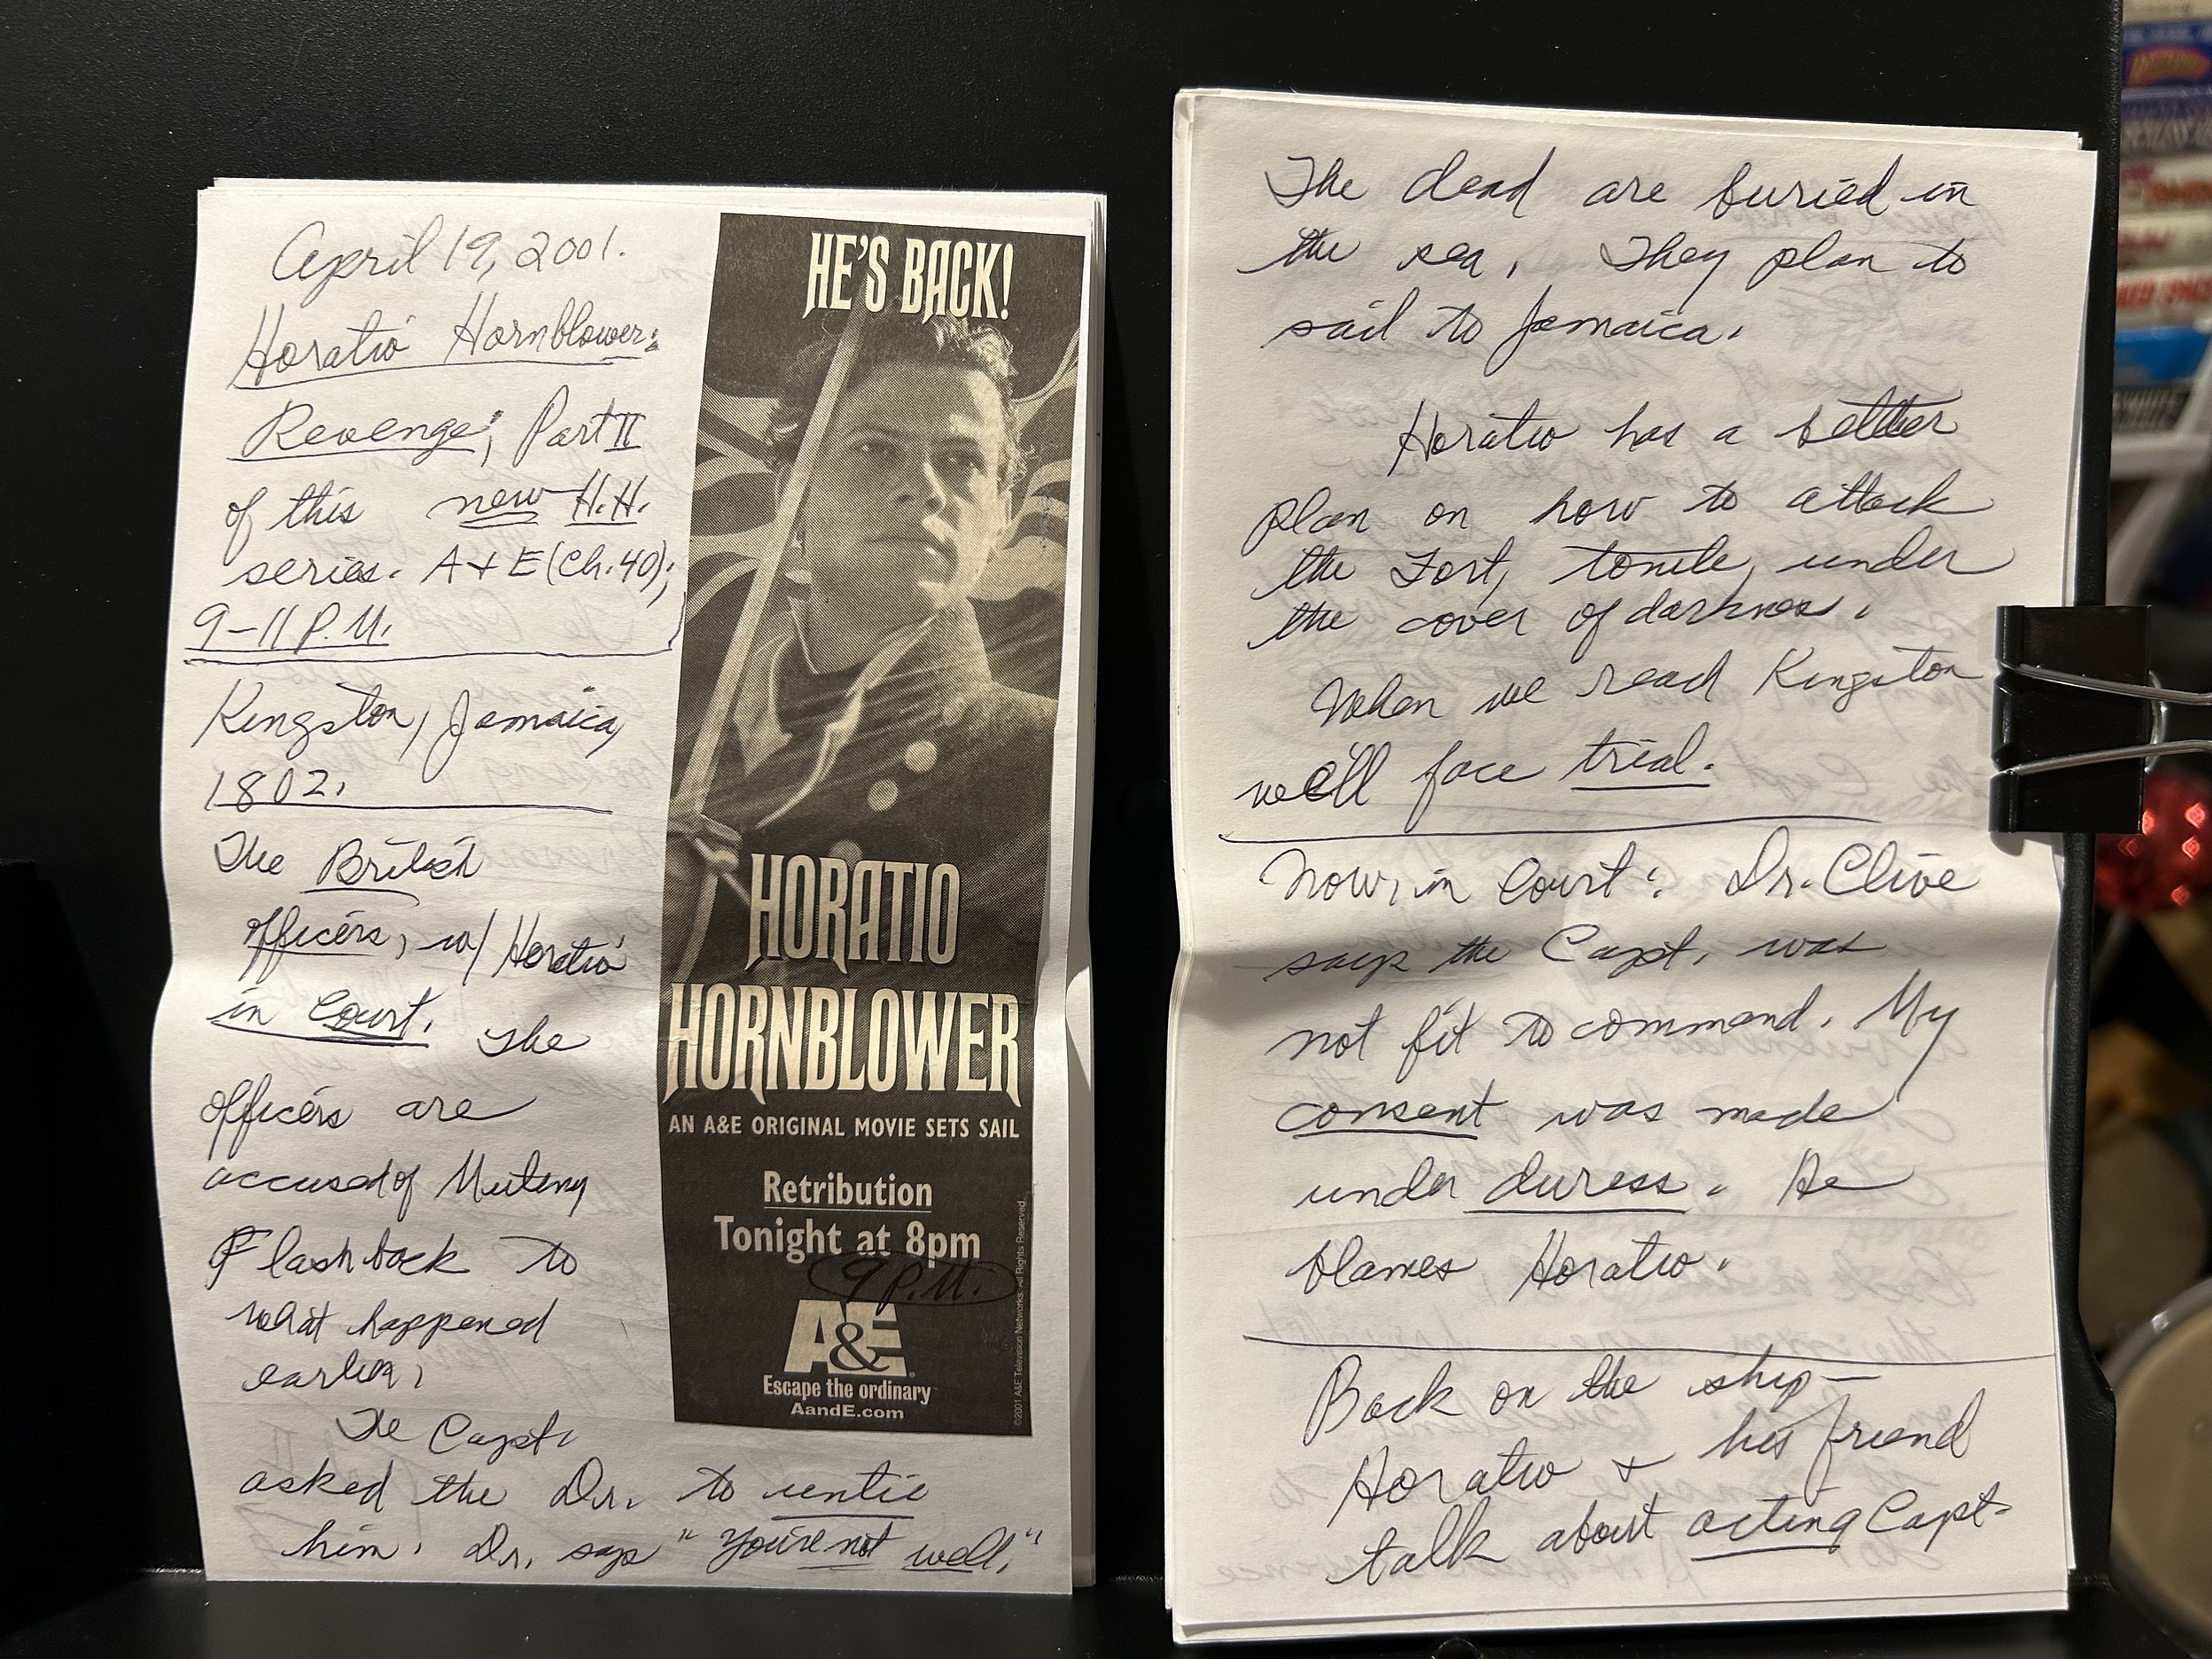 April 19, 2001.
Horatio Hornblower:
Revenge; Part II
of this new H.H.
series. A+E (Ch. 40);
9-11 P.M.
Kingston, Jamaica,
1802.
The British
officers, w/ Horatio
in Court. The
officers are
accused of Mutiny
Flashback to
what happened
earlier.
The Capt.
asked the Dr. to untie
him. Dr. says "You're not well."
HE'S BACK!
HORATIO
HORNBLOWER
AN A&E ORIGINAL MOVIE SETS SAIL
Retribution
Tonight at 8pm
9 P.M.
A&E
Escape the ordinary
AandE.com
©2001 A&E Television Networks. All Rights Reserved.
The dead are buried in
the sea. They plan to
sail to Jamaica.
Horatio has a better
plan on how to attack
the Fort, tonite, under
the cover of darknes.
When we reach Kingston
we'll face trial.
Now, in Court: Dr. Clive
says the Capt. was
not fit to command. My
consent was made
under duress. He
blames Horatio.
Back on the ship—
Horatio + his friend
talk about acting Capt.